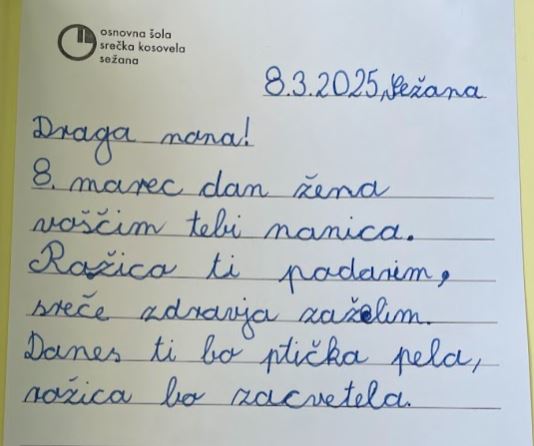 osnovna šola
srečka kosovela
sežana
8.3.2025, Sežana
Draga nona!
8. marec dan žena
voščim tebi nonica.
Rožica ti podarim,
sreče zdravja zaželim.
Danes ti bo ptička pela,
rožica bo zacvetela.